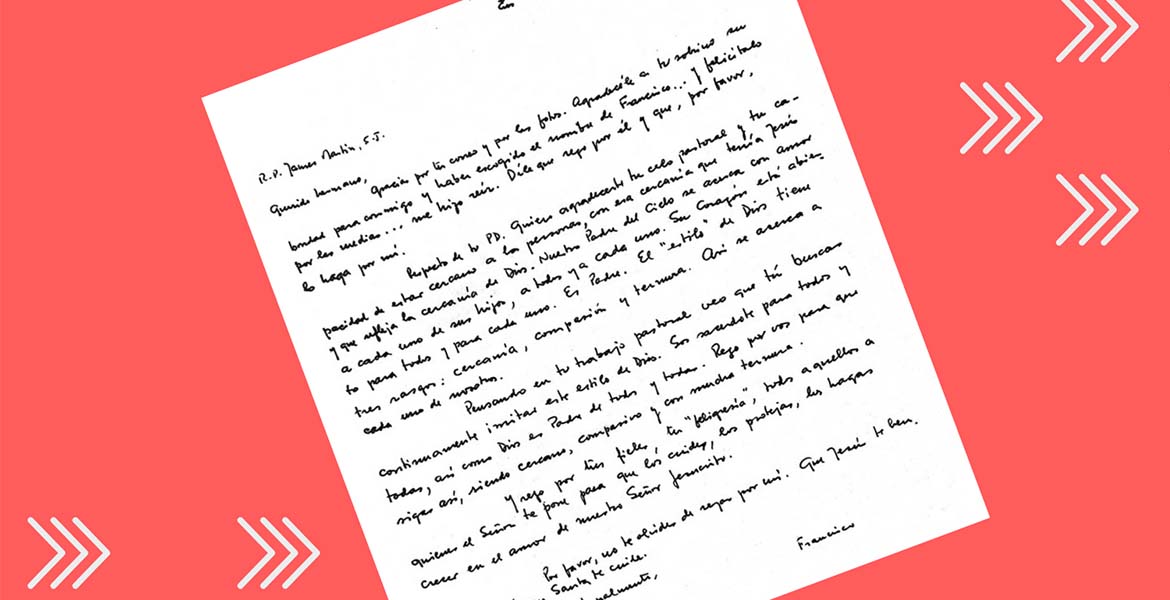 R.P. James Martin, S.J.
Querido hermano,
gracias por tu correo y por las fotos. Agradecele a tu sobrino su
bondad para conmigo y haber escogido el nombre de Francisco... y felicitalo
por las medias... me hizo reír. Dile que rezo por él y que, por favor,
lo haga por mí.
Respecto de tu PD. Quiero agradecerte tu celo pastoral y tu ca-
pacidad de estar cercano a las personas, con esa cercanía que tenía Jesús
y que refleja la cercanía de Dios. Nuestro Padre del Cielo se acerca con amor
a cada uno de sus hijos, a todos y a cada uno. Su corazón está abier-
to para todos y para cada uno. Es Padre. El "estilo" de Dios tiene
tres rasgos: cercanía, compasión y ternura. Así se acerca a
cada uno de nosotros.
Pensando en tu trabajo pastoral veo que tú buscas
continuamente imitar este estilo de Dios. Sos sacerdote para todos y
todas, así como Dios es Padre de todos y todas. Rezo por vos para que
sigas así, siendo cercano, compasivo y con mucha ternura.
Y rezo por tus fieles, tu "feligresía", todos aquellos a
quienes el Señor te pone para que los cuides, los protejas, los hagas
crecer en el amor de nuestro Señor Jesucristo.
Por favor, no te olvides de rezar por mí. Que Jesús te ben.
Santa te cuide.
Francisco